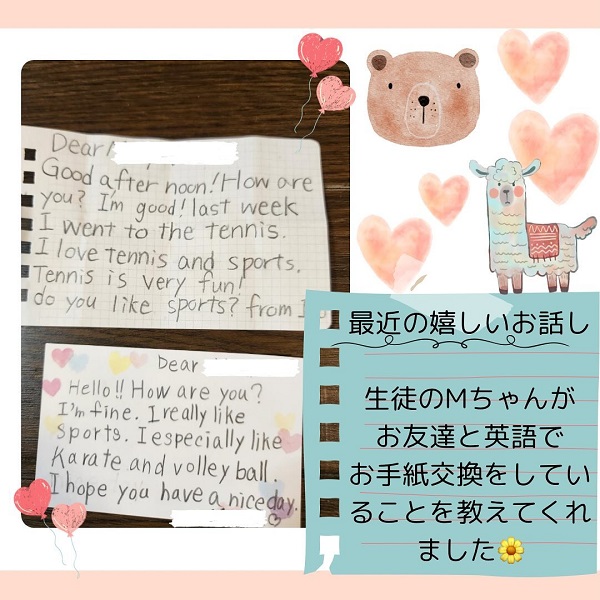 Dear
Good after noon! How are
you? I'm good! last week
I went to the tennis.
I love tennis and sports.
Tennis is very fun!
do you like sports? from
Dear
Hello!! How are you?
I'm fine. I really like
sports. I especially like
Karate and volley ball.
I hope you have a nice day.
最近の嬉しいお話し
生徒のMちゃんが
お友達と英語で
お手紙交換をしてい
ることを教えてくれ
ました🌼